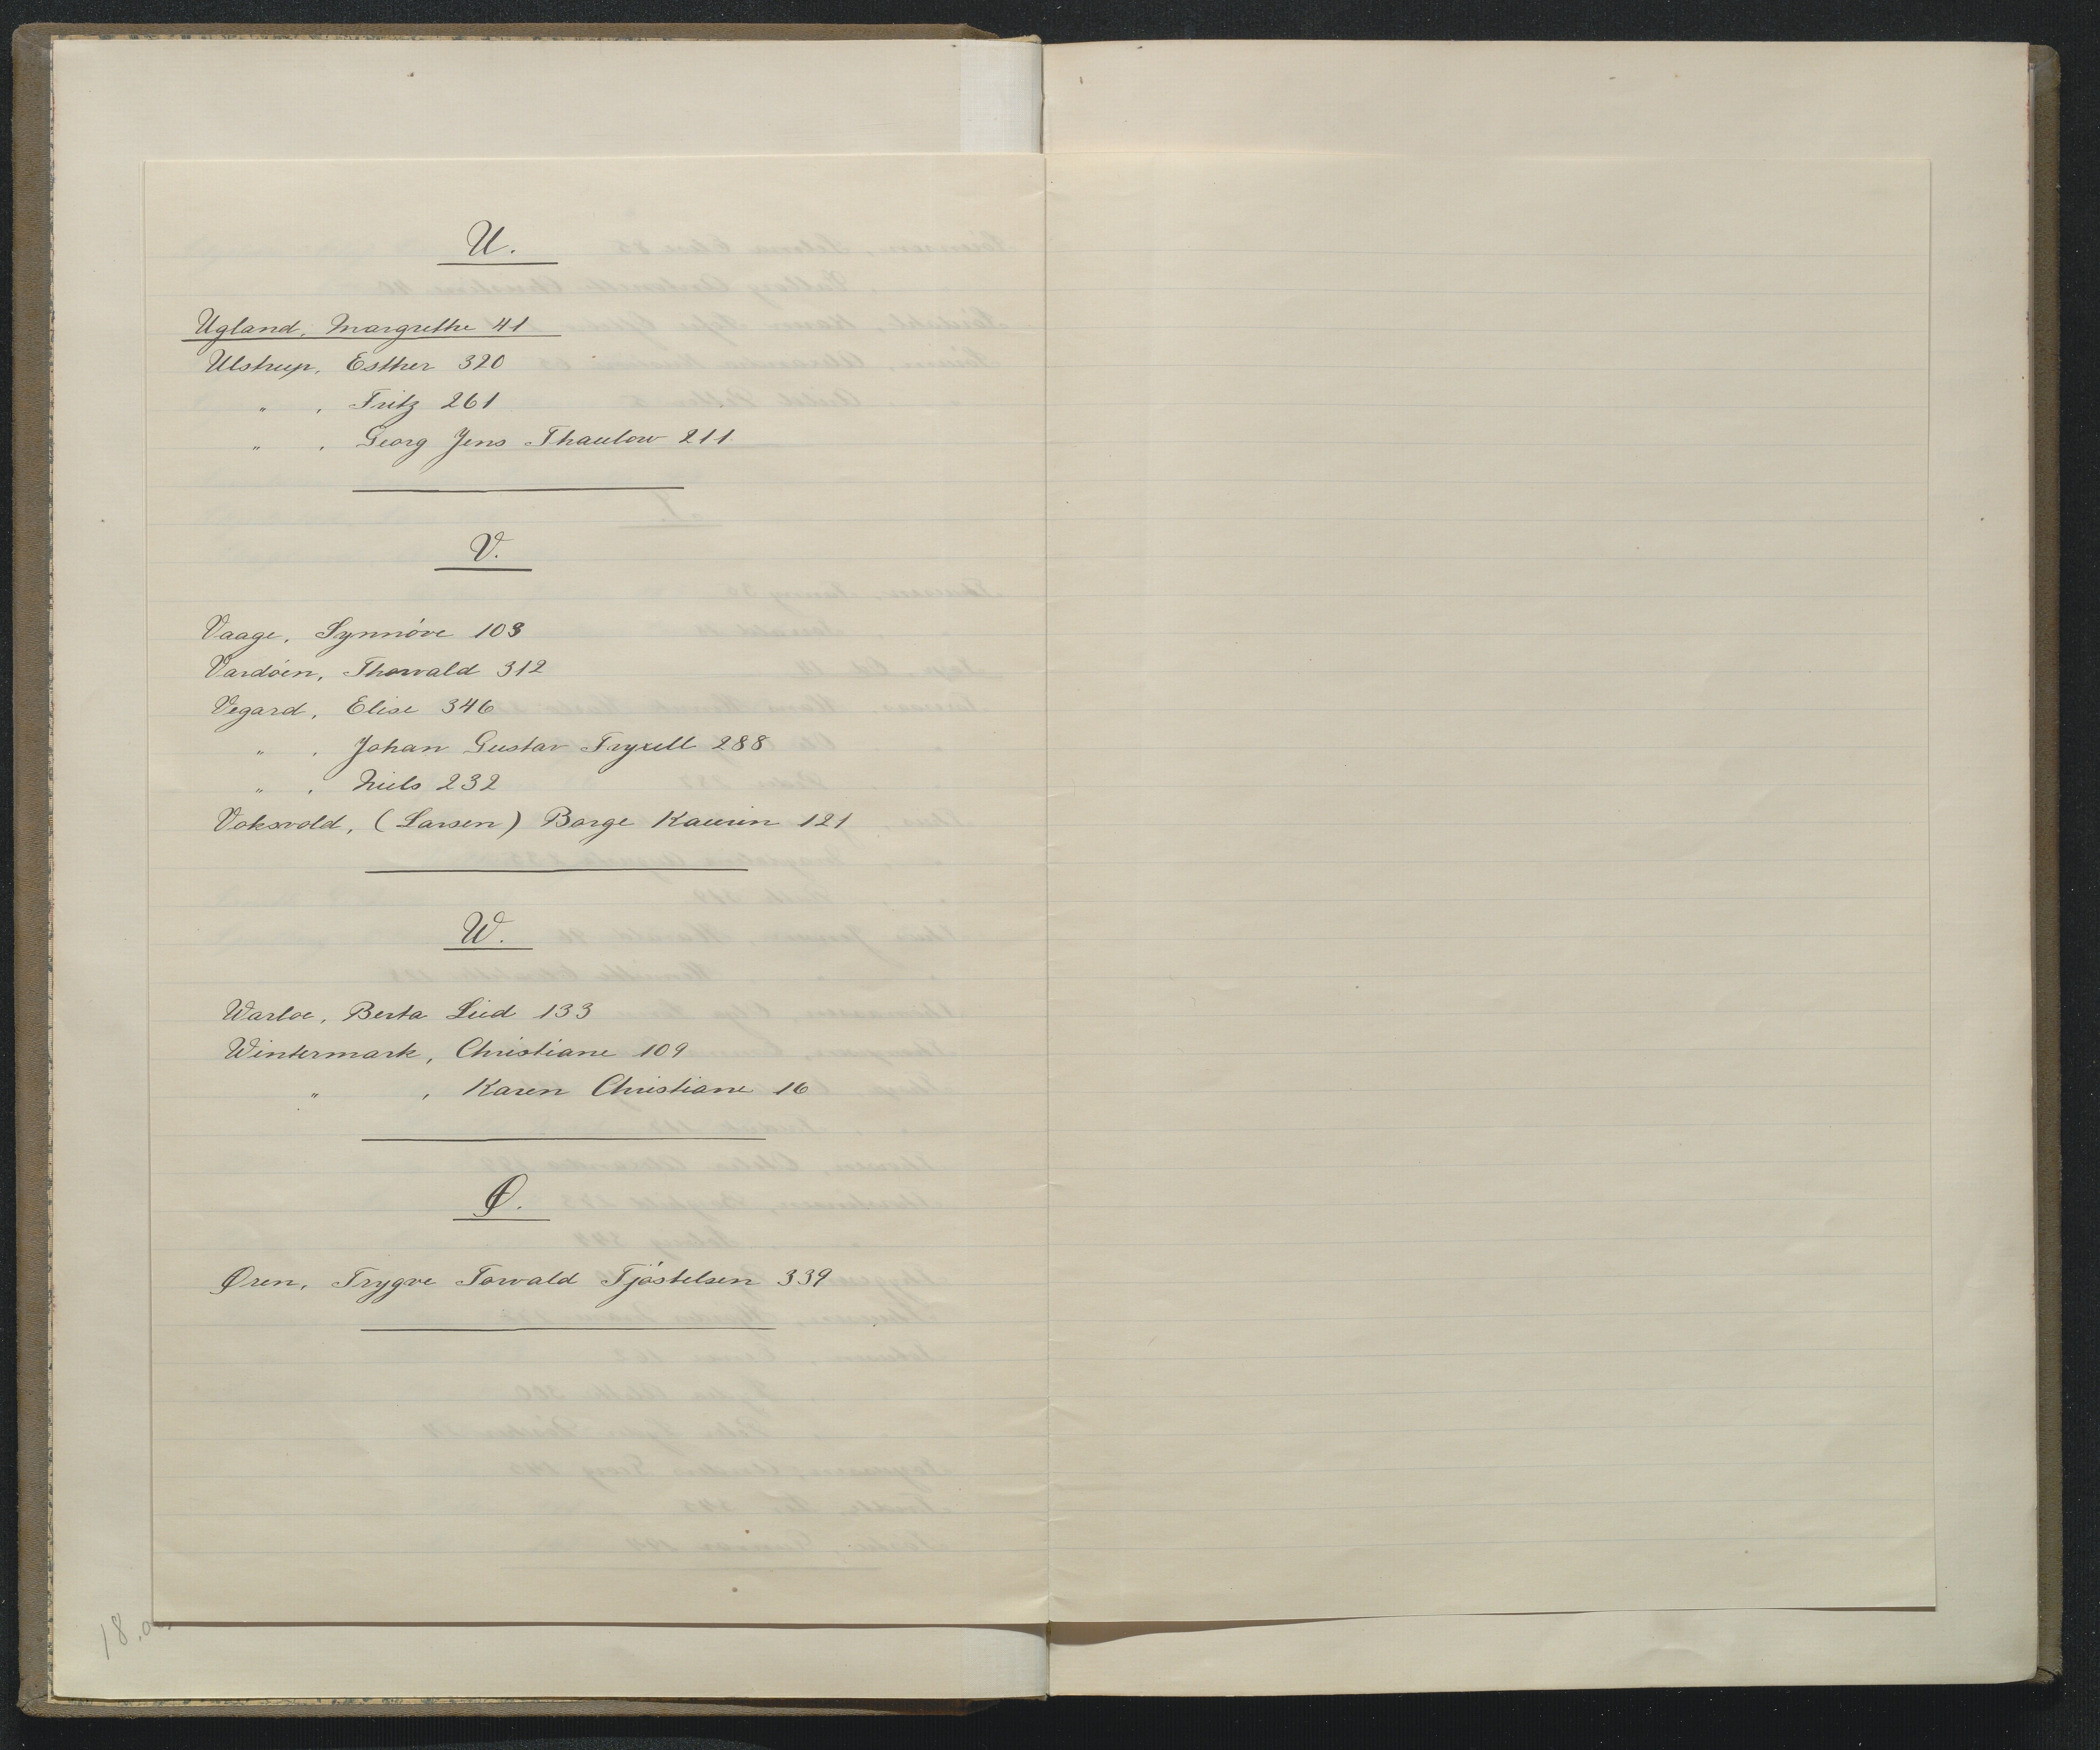 U.
Ugland, Margrethe 41
Ulstrup, Esther 320
" , Fritz 261
" , Georg Jens Thaulow 211.
V.
Vaage, Synnöve 103
Vardöen, Thorvald 312
Vegard, Elise 346
" , Johan Gustav Fryxell 288
" , Niels 232
Voksvold, (Larsen) Borge Kaurin 121
W.
Warloe, Berta Lied 133
Wintermark, Christiane 109
" , Karen Christiane 16
Ø.
Øren, Trygve Torvald Tjöstelsen 339